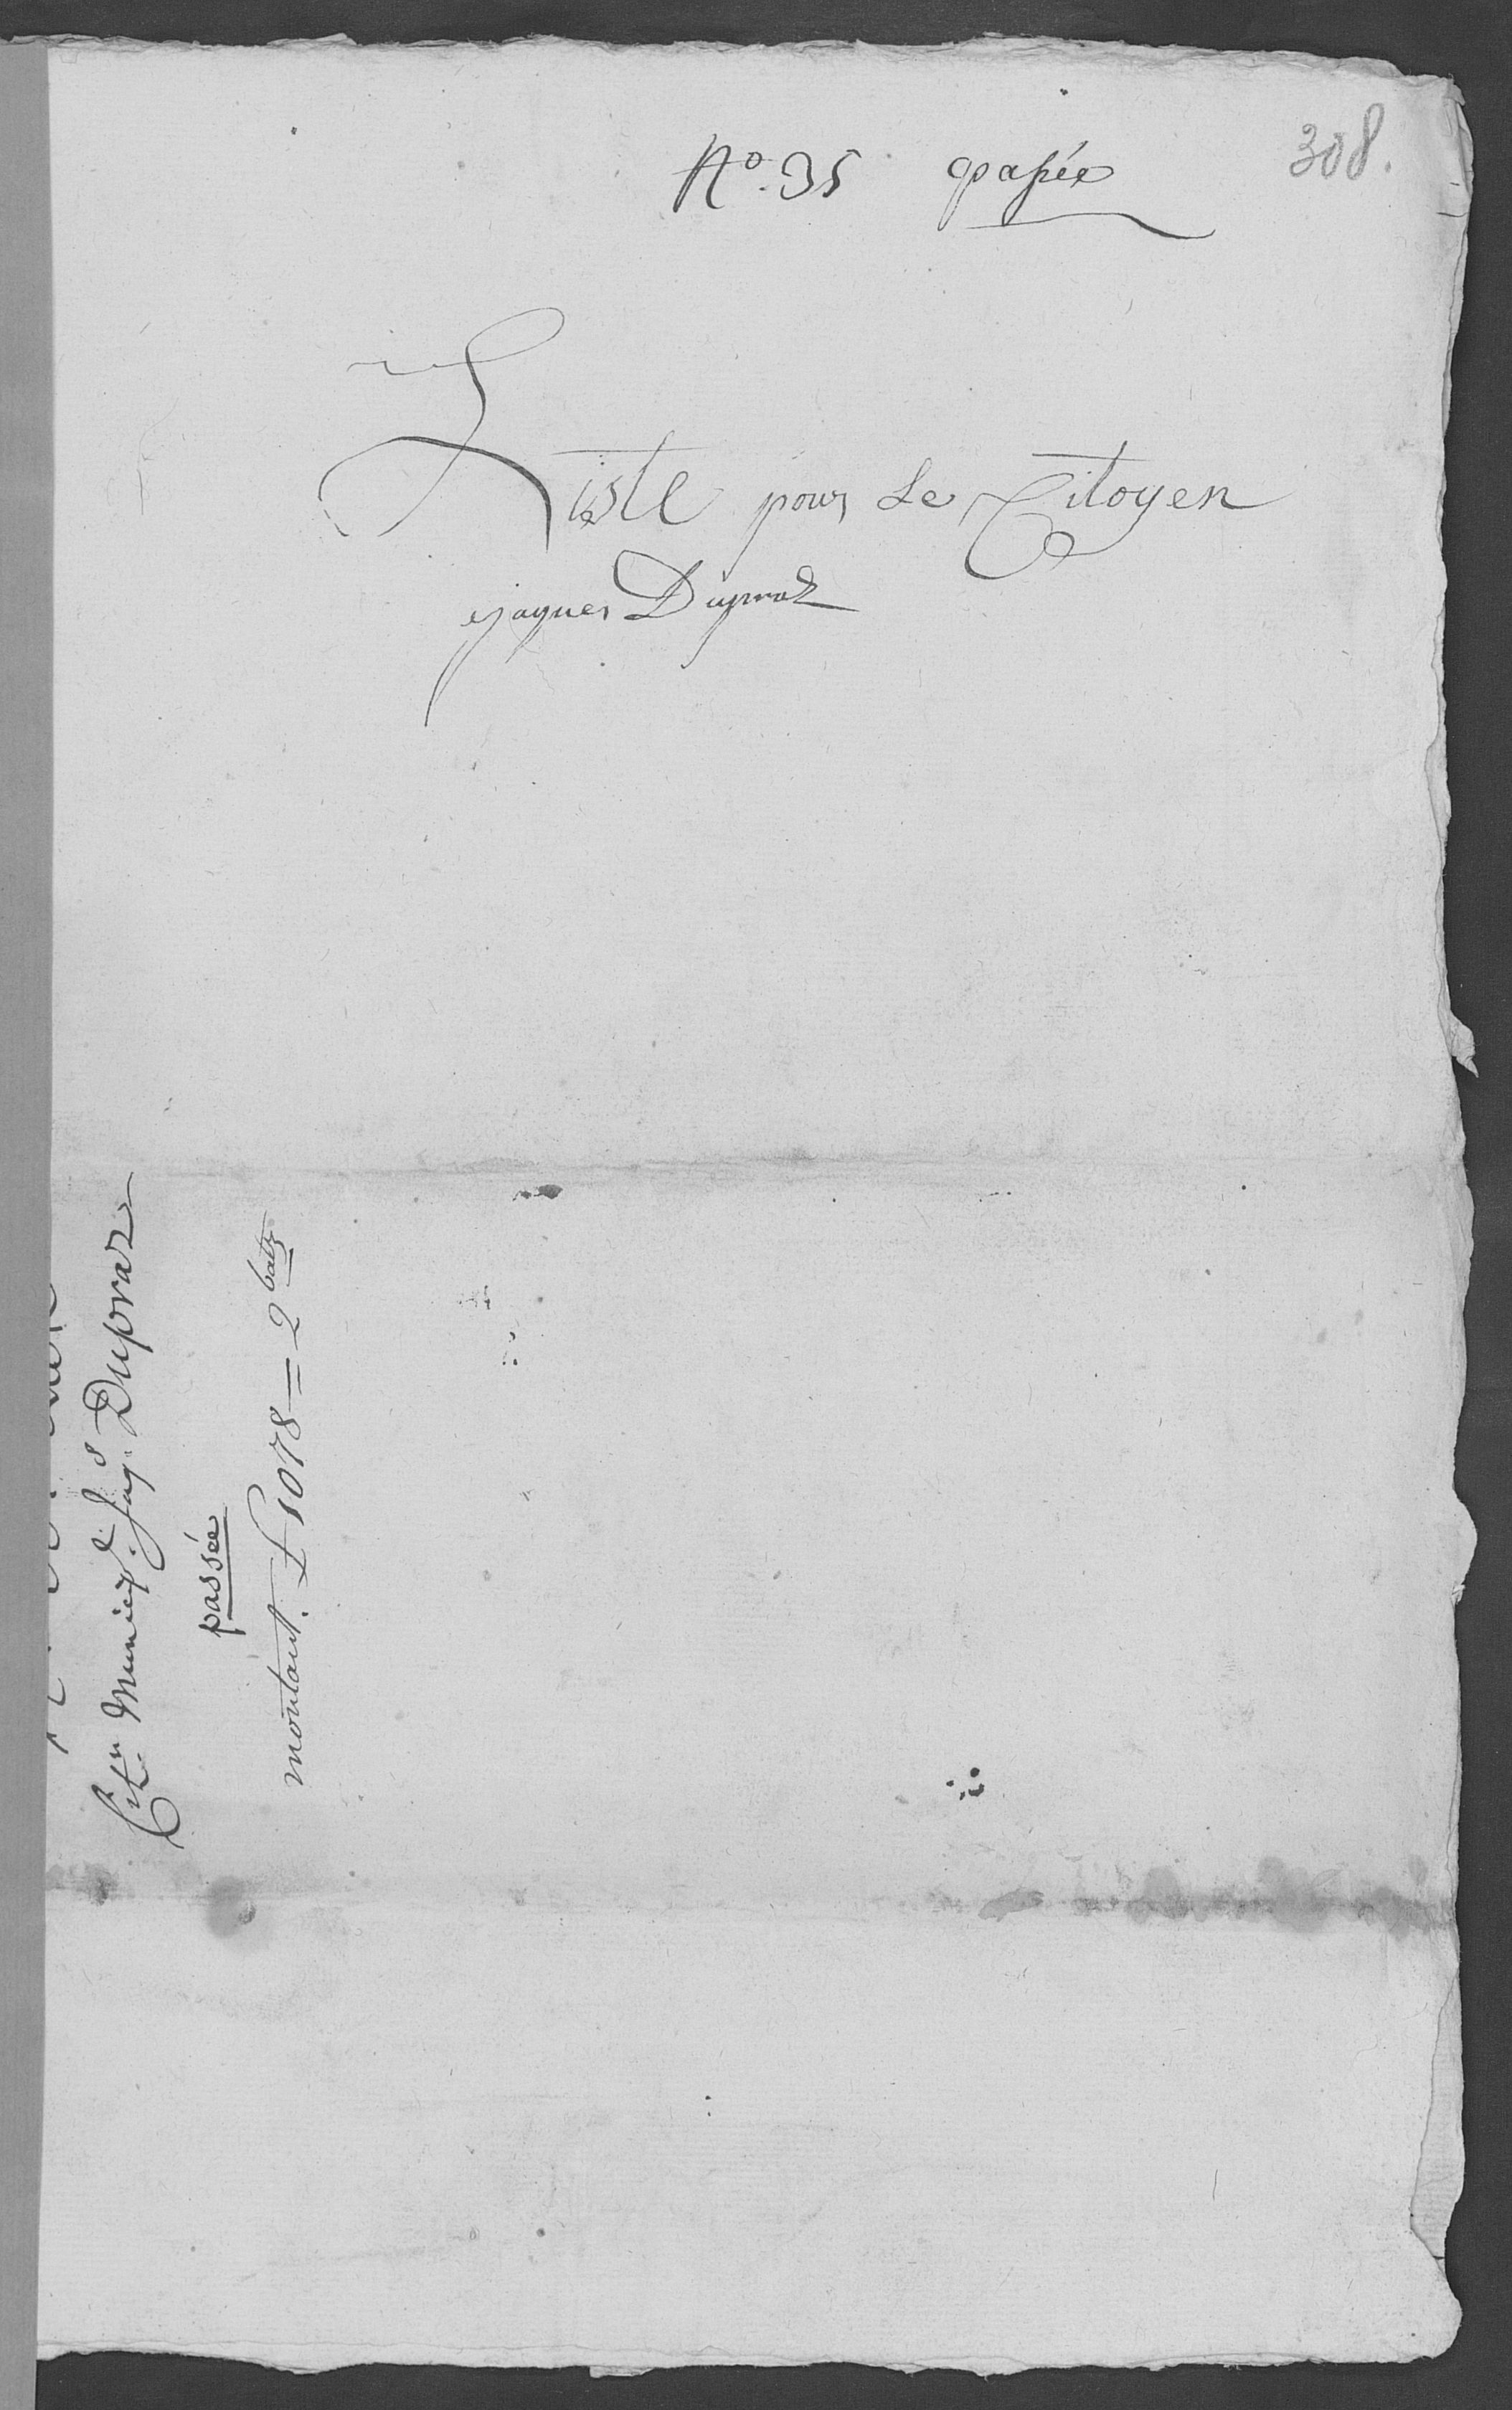 308.
No. 35 passée
Liste pour Le Citoyen
Jaques Dupraz
Citn. Municipl. Jaqs. Dupraz
passée
montant. £ 1078 = 2 batz